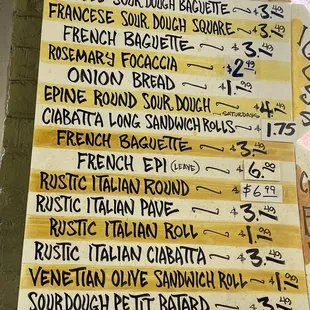 SOUR DOUGH BAGUETTE ~ $3.49
FRANCESE SOUR DOUGH SQUARE ~ $3.49
FRENCH BAGUETTE ~ $3.49
ROSEMARY FOCACCIA ~ $2.49
ONION BREAD ~ $1.99
EPINE ROUND SOUR DOUGH ~ SATURDAYS $4.49
CIABATTA LONG SANDWICH ROLLS ~ $1.75
FRENCH BAGUETTE ~ $3.49
FRENCH EPI (LEAVE) ~ $6.20
RUSTIC ITALIAN ROUND ~ $6.99
RUSTIC ITALIAN PAVE ~ $3.49
RUSTIC ITALIAN ROLL ~ $1.79
RUSTIC ITALIAN CIABATTA ~ $3.49
VENETIAN OLIVE SANDWICH ROLL ~ $1.99
SOURDOUGH PETIT BATARD ~ $3.49